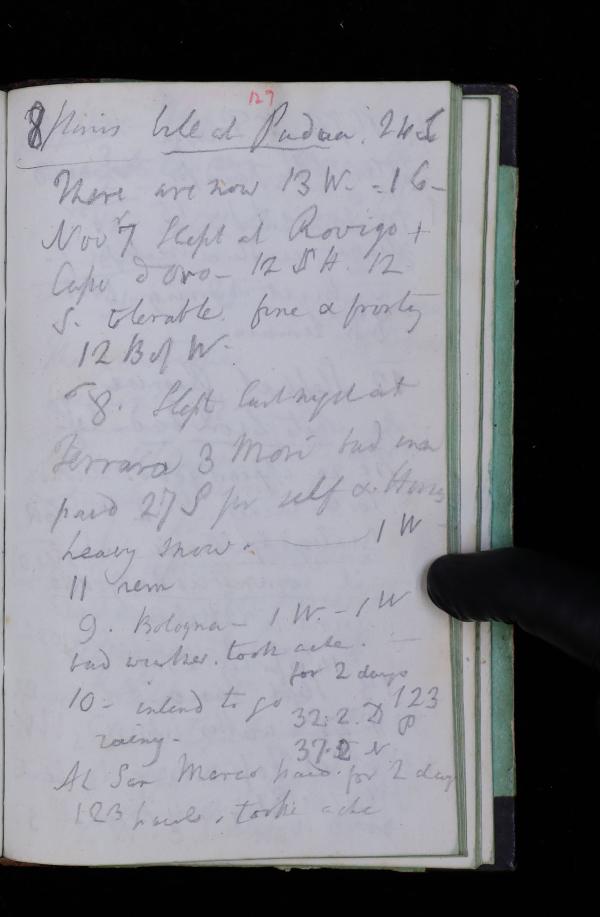 127
8 Hinis bill at Padua. 24 S
There are now 13 W. = 16 -
Nov r 7 Slept at Rovigo +
Capo d'Oro - 12 S H. 12
S. tolerable. fine & frosty
12 B of W.
8. Slept last night at
Ferrara 3 Mori bad inn
paid 27 S for self & Horses
heavy snow. 1 W -
11 rem
9. Bologna - 1 W. - 1 W
bad weather. tooth ache.
for 2 days
10 - intend to go 32.2. D 123 P
rainy - 37.2 N
At San Marco paid for 2 days
123 pauls. tooth ache